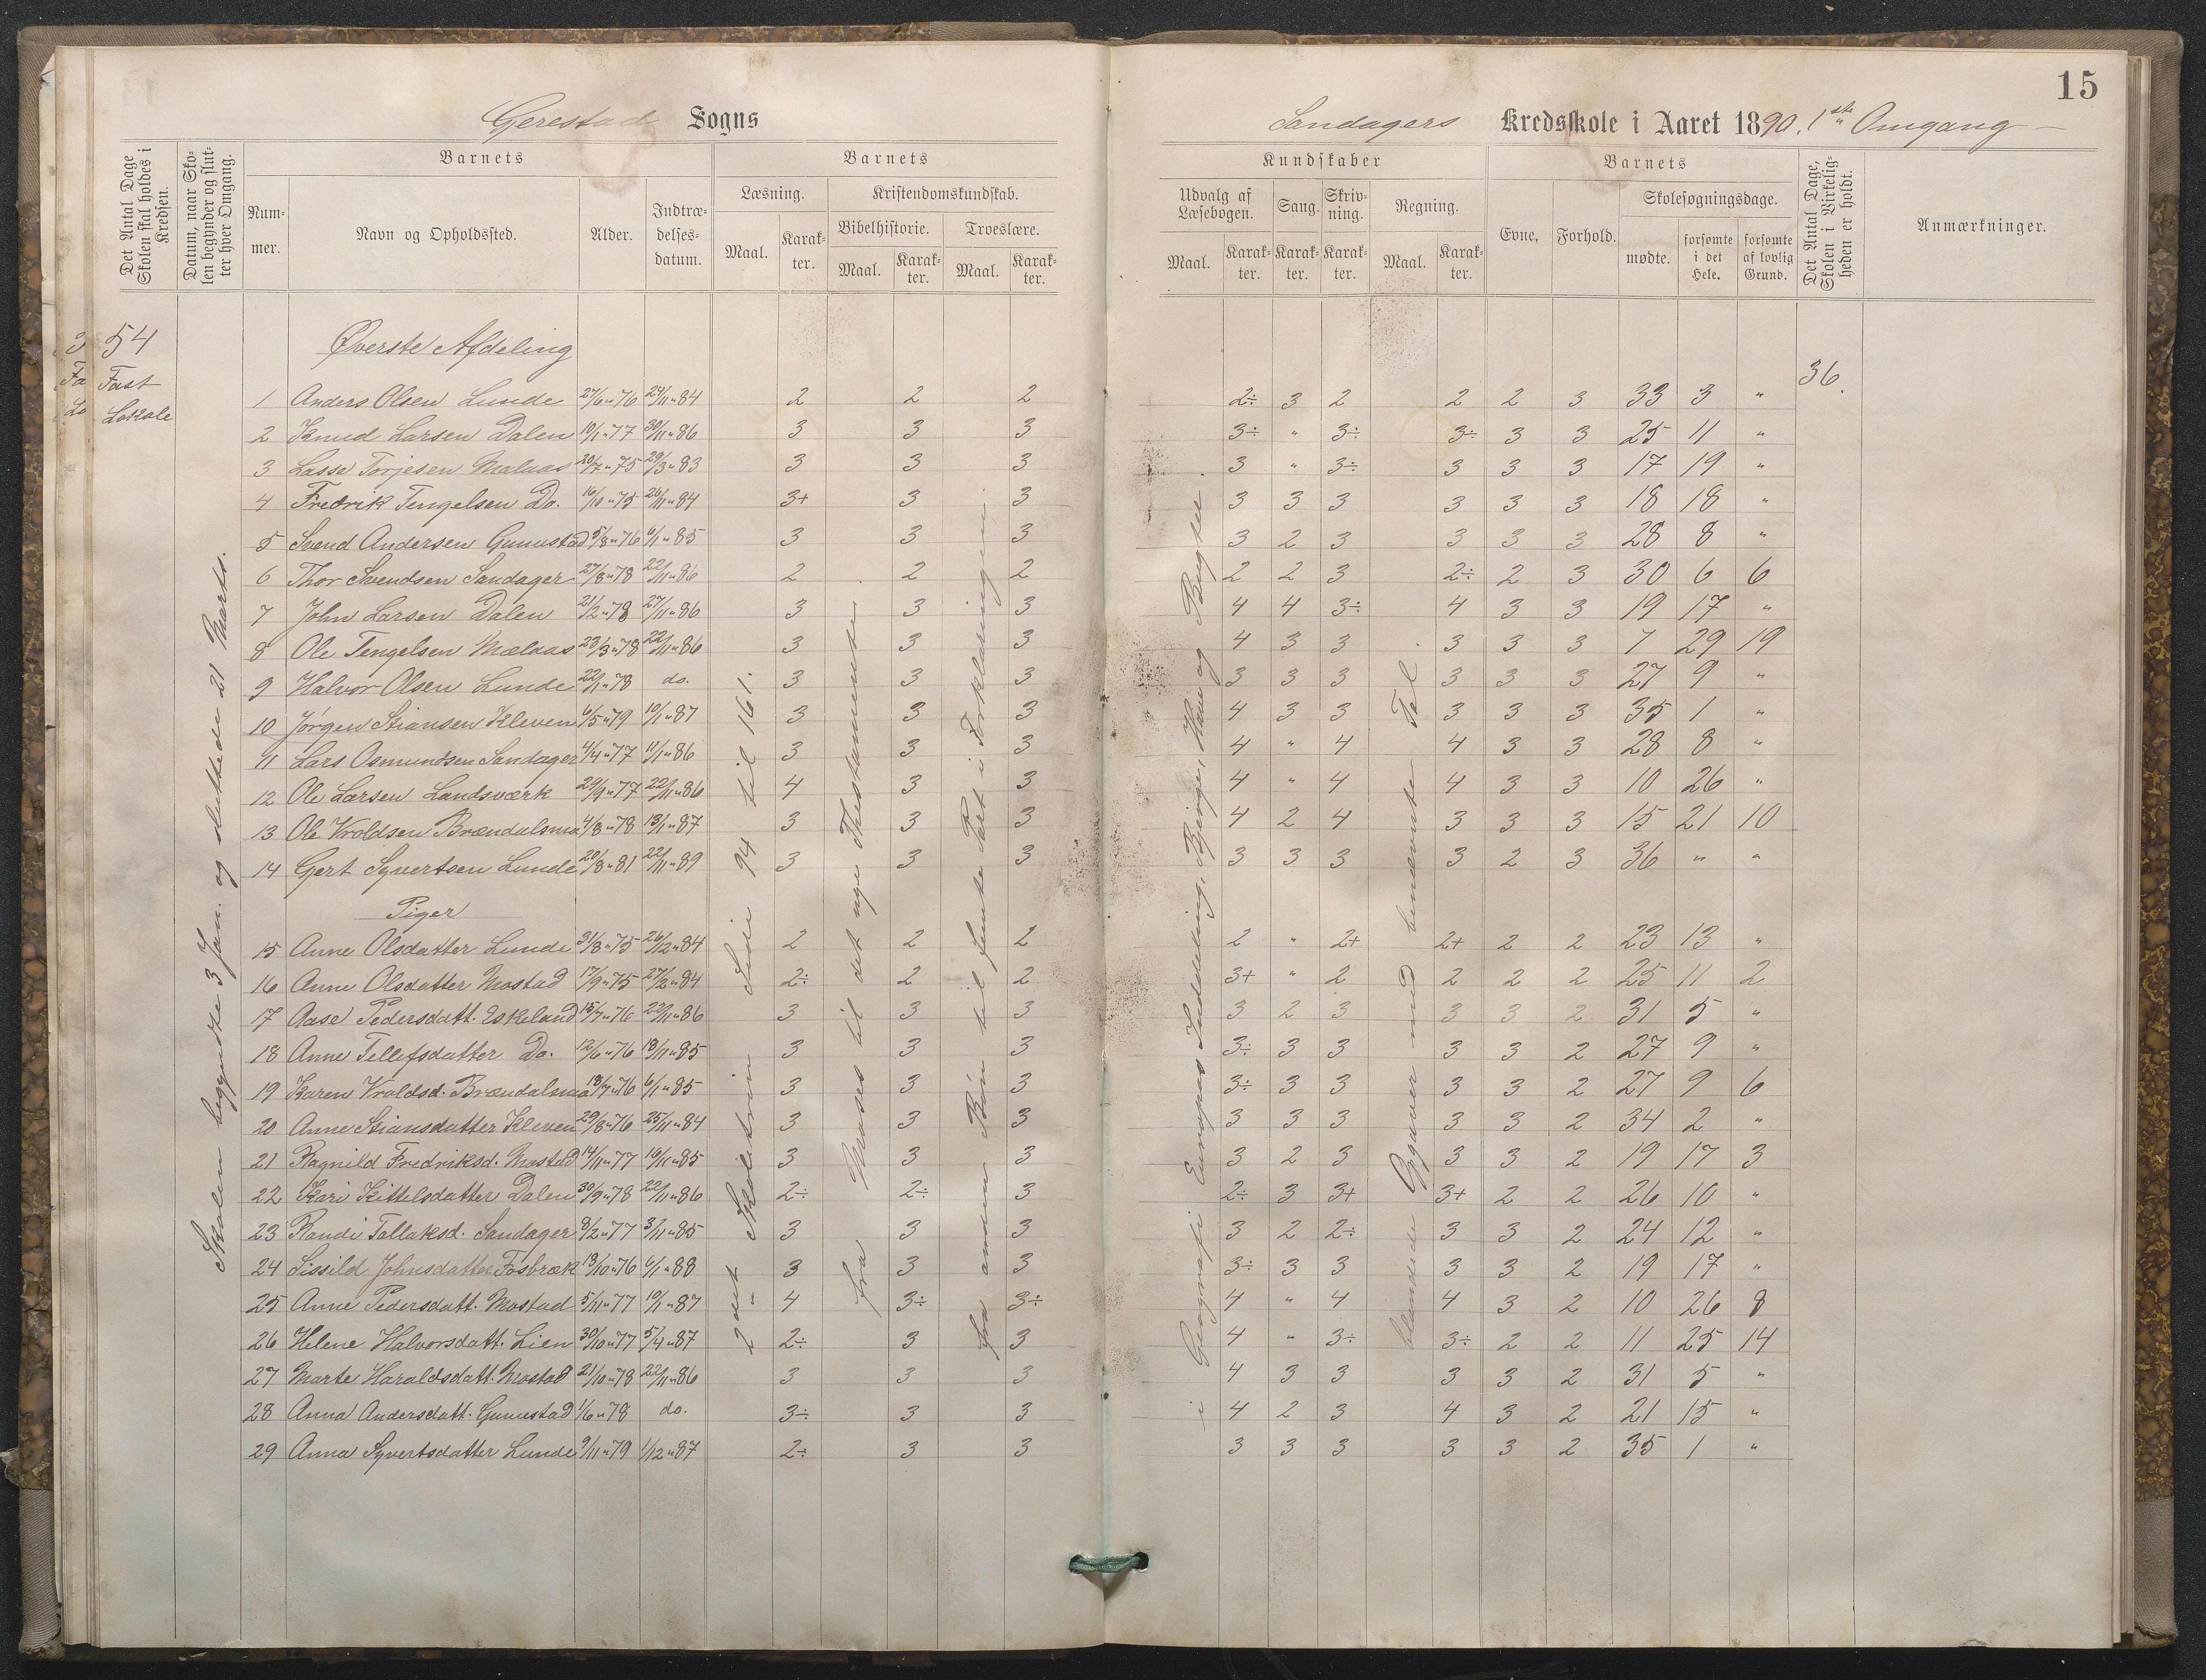 15
Gerestad Sogns
Sandagers Kredsskole i Aaret 1890. 1ste Omgang
Det Antal Dage Skolen skal holdes i Kredsen.
Datum, naar Skolen begynder og slutter hver Omgang.
Barnets
Barnets
Nummer.
Navn og Opholdssted.
Alder.
Indtrædelsesdatum.
Læsning.
Kristendomskundskab.
Bibelhistorie.
Troeslære.
Maal.
Karakter.
Maal.
Karakter.
Maal.
Karakter.
Kundskaber
Barnets
Udvalg af Læsebogen.
Sang.
Skrivning.
Regning.
Evne.
Forhold.
Skolesøgningsdage.
Maal.
Karakter.
Karakter.
Karakter.
Maal.
Karakter.
mødte.
forsømte i det Hele.
forsømte af lovlig Grund.
Det Antal Dage, Skolen i Virkeligheden er holdt.
Anmærkninger.
54
Fast
Lokale
Skolen begyndte 3 Jan. og sluttede 21 Marts.
2det Skoletrin Side 94 til 161.
fra Moses til det nye Thestamente.
fra anden Bøn til femte Part i Forklaringen.
i Geografi Europas Inddeling, Bjerge, Have og Bugter.
blandede Opgaver med benævnte Tal.
36.
Øverste Afdeling
1 Anders Olsen Lunde 27/6 " 76 24/11 " 84 2 2 2 2÷ 3 2 2 2 3 33 3 "
2 Knud Larsen Dalen 10/1 " 77 30/11 " 86 3 3 3 3÷ " 3÷ 3÷ 3 3 25 11 "
3 Lasse Torjesen Malaas 20/7 " 75 29/3 " 83 3 3 3 3 " 3÷ 3 3 3 17 19 "
4 Fredrik Tengelsen Do. 16/10 " 75 26/11 " 84 3+ 3 3 3 3 3 3 3 3 18 18 "
5 Svend Andersen Gunustad 5/8 " 76 6/1 " 85 3 3 3 3 2 3 3 3 3 28 8 "
6 Thor Svendsen Sandager 27/8 " 78 22/11 " 86 2 2 2 2 2 3 2÷ 2 3 30 6 6
7 John Larsen Dalen 21/2 " 78 27/11 " 86 3 3 3 4 4 3÷ 4 3 3 19 17 "
8 Ole Tengelsen Mælaas 23/3 " 78 22/11 " 86 3 3 3 4 3 3 3 3 3 7 29 19
9 Halvor Olsen Lunde 22/1 " 78 do. 3 3 3 3 3 3 3 3 3 27 9 "
10 Jørgen Stiansen Kleven 6/5 " 79 10/1 " 87 3 3 3 4 3 3 3 3 3 35 1 "
11 Lars Osmundsen Sandager 4/4 " 77 11/1 " 86 3 3 3 4 " 4 4 3 3 28 8 "
12 Ole Larsen Landsværk 29/9 " 77 22/11 " 86 4 3 3 4 " 4 4 3 3 10 26 "
13 Ole Vroldsen Brændalsmo 4/8 " 78 13/1 " 87 3 3 3 4 2 4 3 3 3 15 21 10
14 Gert Syvertsen Lunde 20/8 " 81 22/11 " 89 3 3 3 3 3 3 3 2 3 36 " "
Piger
15 Anne Olsdatter Lunde 31/8 " 75 26/12 " 84 2 2 2 2 " 2+ 2+ 2 2 23 13 "
16 Anne Olsdatter Mostad 17/9 " 75 27/2 " 84 2÷ 2 2 3+ " 2 2 2 2 25 11 2
17 Aase Pedersdatt. Eskeland 15/7 " 76 22/11 " 86 3 3 3 3 2 3 3 3 2 31 5 "
18 Anne Tellefsdatter Do. 12/6 " 76 18/11 " 85 3 3 3 3÷ 3 3 3 3 2 27 9 "
19 Karen Vroldsd. Brændalsmo 18/7 " 76 6/1 " 85 3 3 3 3÷ 3 3 3 3 2 27 9 6
20 Anne Stiansdatter Kleven 29/8 " 76 25/11 " 84 3 3 3 3 3 3 3 3 2 34 2 "
21 Ragnild Fredriksd. Mostad 14/11 " 77 16/11 " 85 3 3 3 3 2 3 3 3 2 19 17 3
22 Kari Kittelsdatter Dalen 30/9 " 78 22/11 " 86 2÷ 2÷ 3 2÷ 3 3+ 3+ 2 2 26 10 "
23 Randi Tallaksd. Sandager 8/2 " 77 3/11 " 85 3 3 3 3 2 2÷ 3 3 2 24 12 "
24 Sissild Johnsdatter Fosbræk 13/10 " 76 6/1 " 88 3 3 3 3÷ 3 3 3 3 2 19 17 "
25 Anne Pedersdatt. Mostad 5/11 " 77 10/1 " 87 4 3÷ 3÷ 4 " 4 4 3 2 10 26 8
26 Helene Halvorsdatt. Lien 30/10 " 77 5/4 " 87 2÷ 3 3 4 " 3÷ 3÷ 2 2 11 25 14
27 Marte Haraldsdatt. Mostad 21/10 " 78 22/11 " 86 3 3 3 4 3 3 3 3 2 31 5 "
28 Anna Andersdatt. Gunustad 1/6 " 78 do. 3÷ 3 3 4 2 3 4 3 2 21 15 "
29 Anna Syvertsdatter Lunde 9/11 " 79 1/12 " 87 2÷ 3 3 3 3 3 3 3 2 35 1 "